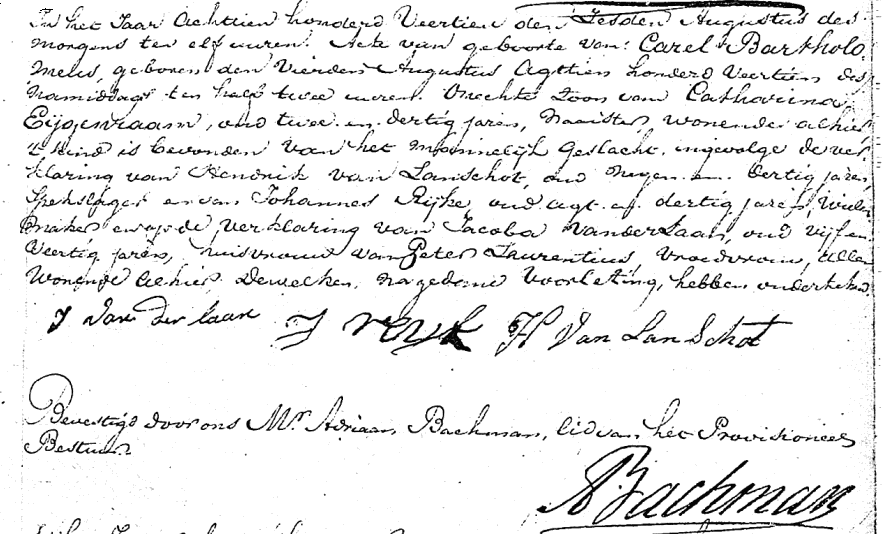 In het Jaar Achtien honderd Veertien den Zesden Augustus des
morgens ten elf uuren. Acte van geboorte van: Carel Bartholo
meus, geboren den Vierden Augustus Agttien honderd Veertien des
namiddags ten half twee uuren. Onechte Zoon van Catharina
Eijgenraam, oud twee en dertig jaren, Naaister, wonende alhier
't Kind is bevonden van het Mannelijk Geslacht, ingevolge de ver
klaring van Hendrik van Lanschot, oud Negen en Dertig jaren,
Spekslager en van Johannes Rijke oud agt en dertig jaren, Wiele
maker en op de verklaring van Jacoba VanderLaan, oud vijf en
Veertig jaren, huisvrouw van Peter Laurentius, Vroedvrouw, Allen
Wonende Alhier. Dewelken, na gedane Voorlezing, hebben onderteken
J van der laan J reyk H Van Lan Schot
Bevestigd door ons Mr Adriaan Bachman, lid van het Provisioneel
Bestuur
A Bachman